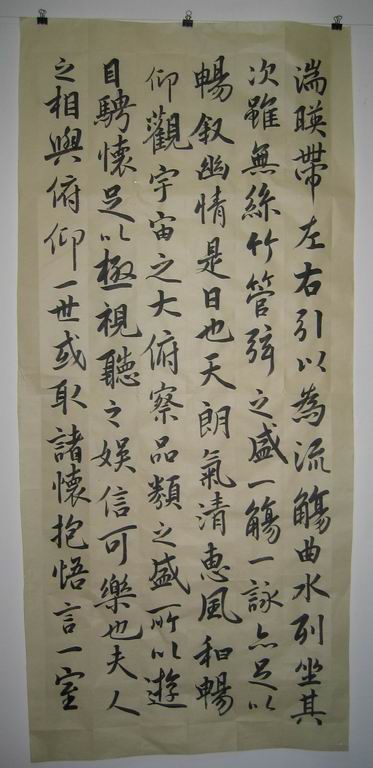 湍暎帶左右引以為流觴曲水列坐其
次雖無絲竹管弦之盛一觴一詠亦足以
暢叙幽情是日也天朗氣清惠風和暢
仰觀宇宙之大俯察品類之盛所以遊
目騁懷足以極視聽之娛信可樂也夫人
之相與俯仰一世或取諸懷抱悟言一室